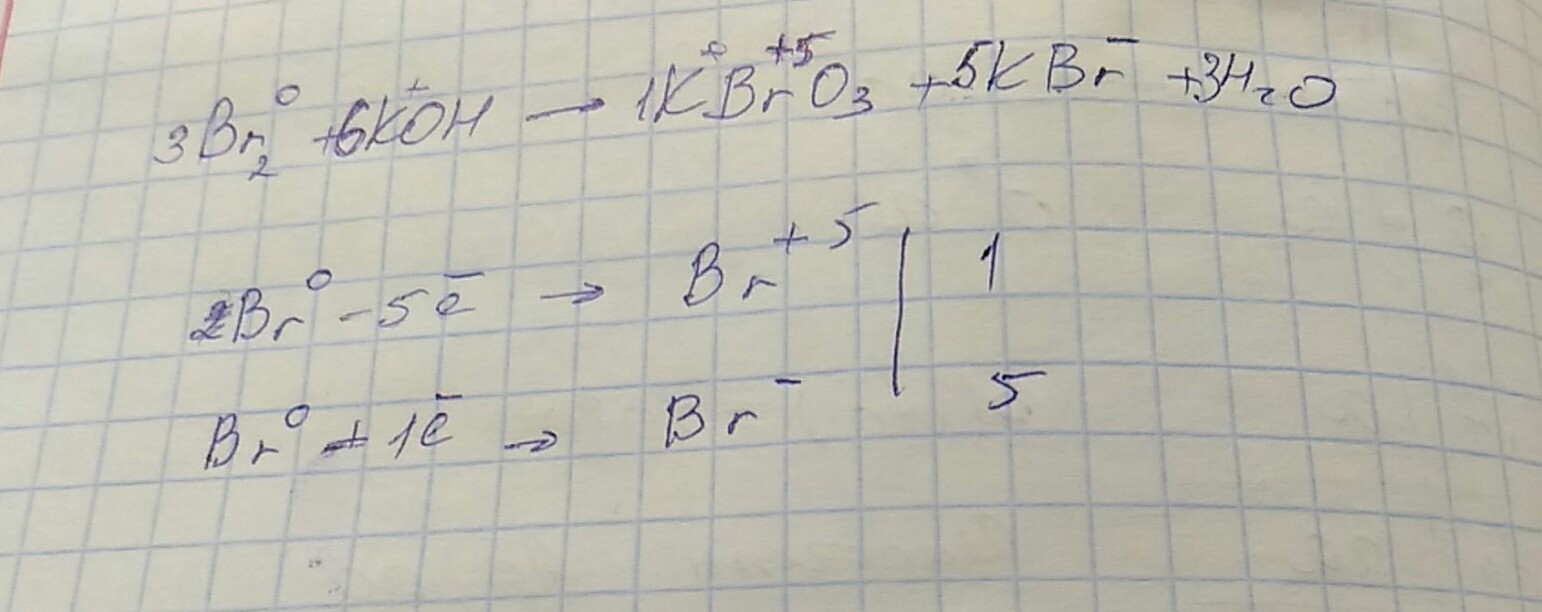 3Br₂⁰ + 6K⁺OH → 1K⁺Br⁺⁵O₃ + 5KBr⁻ + 3H₂O
2Br⁰ - 5e̅ → Br⁺⁵ | 1
Br⁰ + 1e̅ → Br⁻ | 5